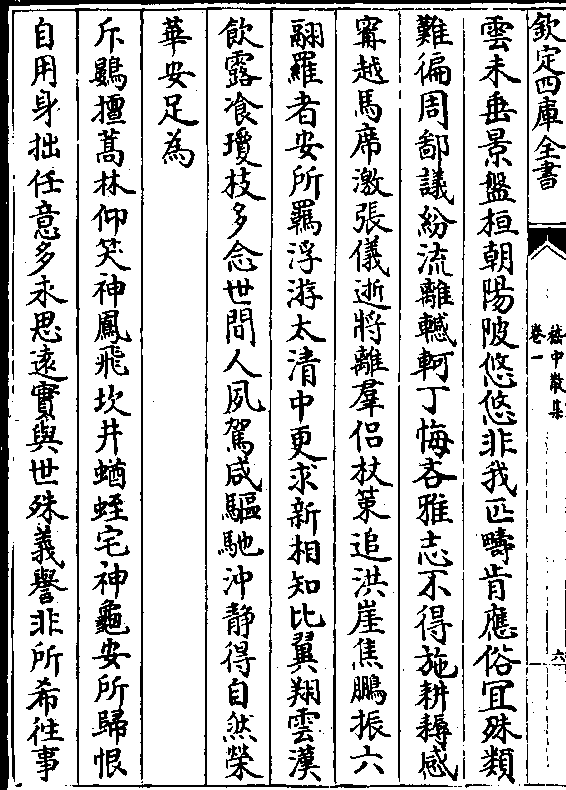 欽定四庫全書
嵇中散集
卷一
六
雲未垂景盤桓朝陽陂悠悠非我匹疇肯應俗冝殊類
難徧周鄙議紛流離轗軻丁悔吝雅志不得施耕耨感
甯越馬席激張儀逝將離羣侣杖策追洪崖焦鵬振六
翮羅者安所羈浮游太清中更求新相知比翼翔雲漢
飲露飡瓊枝多念世間人夙駕咸驅馳沖静得自然榮
華安足為
斥鷃擅蒿林仰笑神鳳飛坎井蝤蛭宅神龜安所歸恨
自用身拙任意多永思遠實與世殊義譽非所希徃事